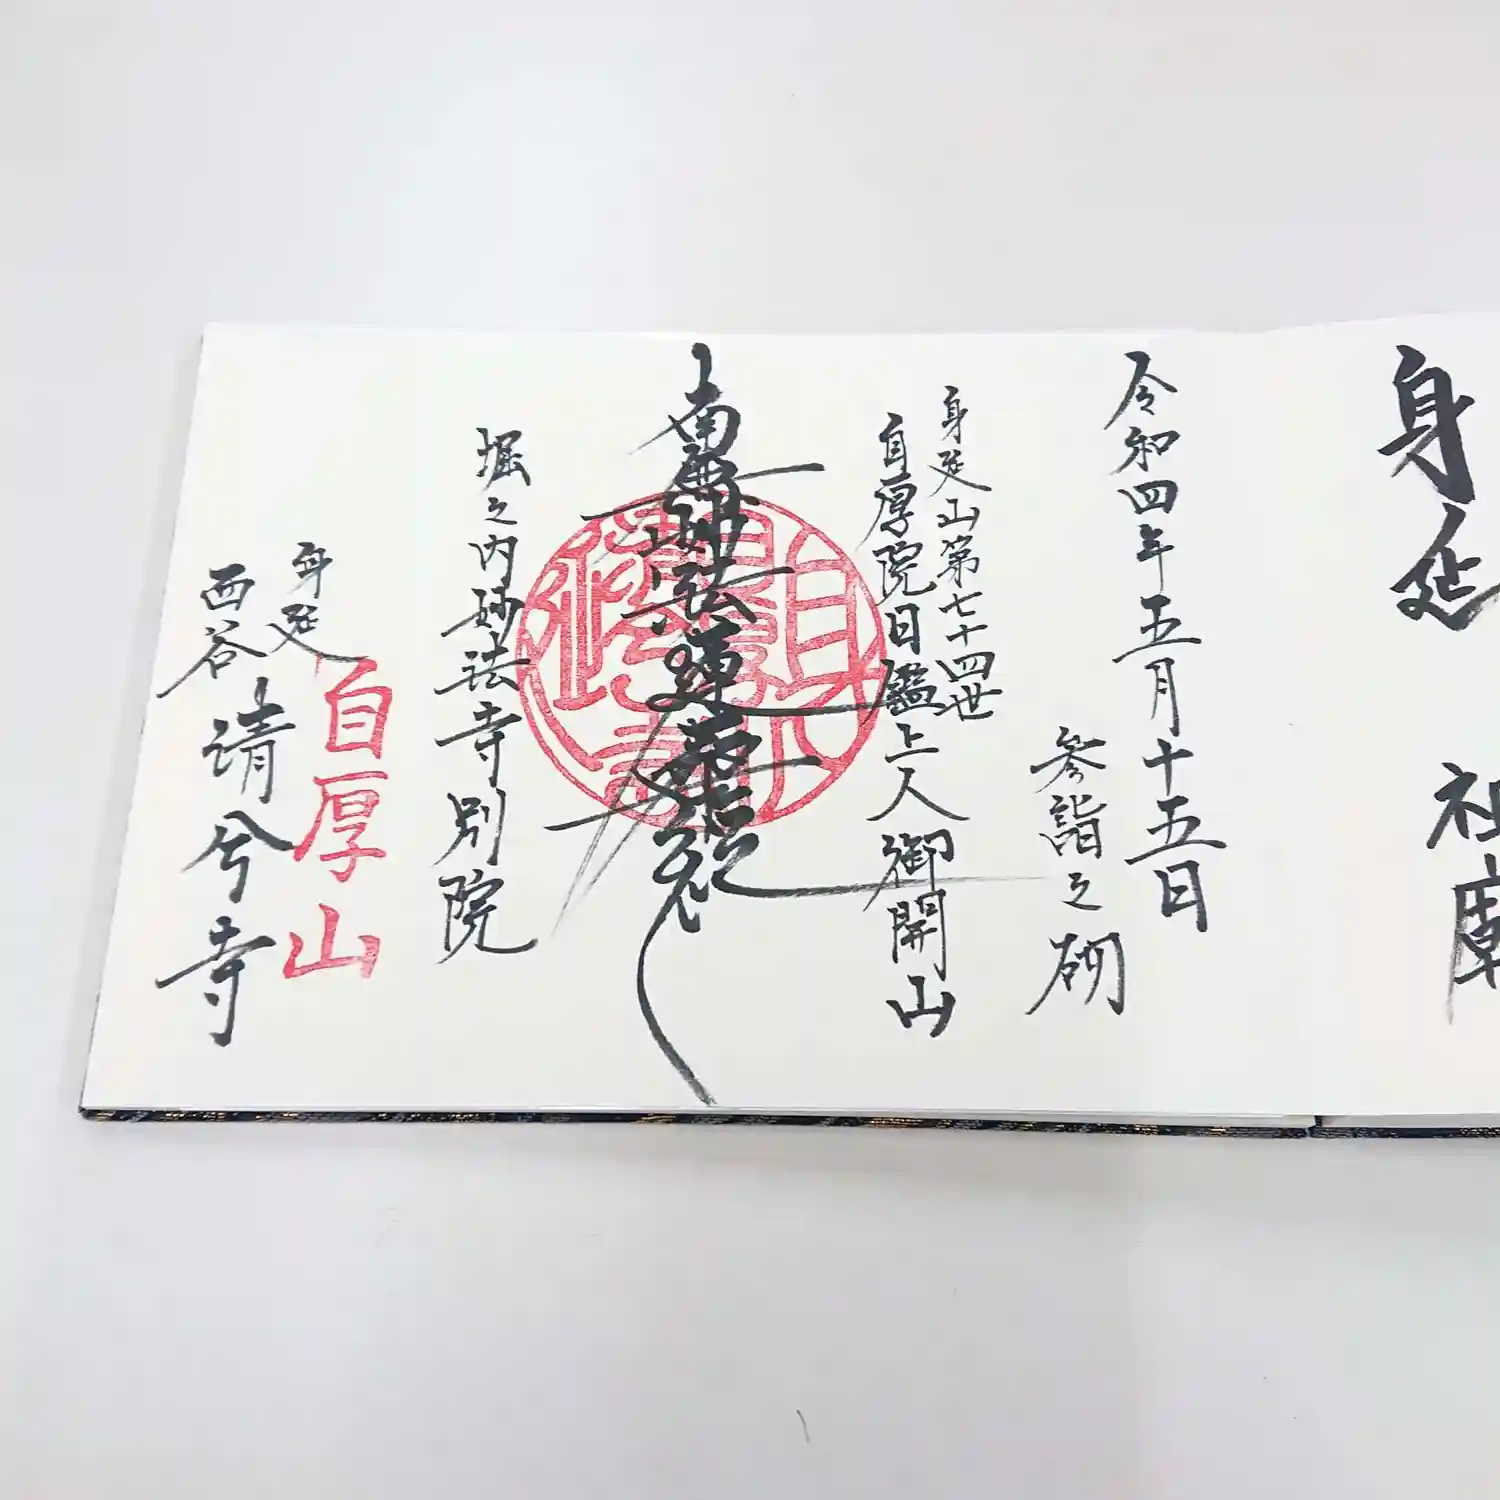 身延
祖廟
令和四年五月十五日
参詣之砌
身延山第七十四世
自厚院日鑑上人御開山
南無妙法蓮華経
堀之内妙法寺別院
自厚山
身延
西谷
清兮寺